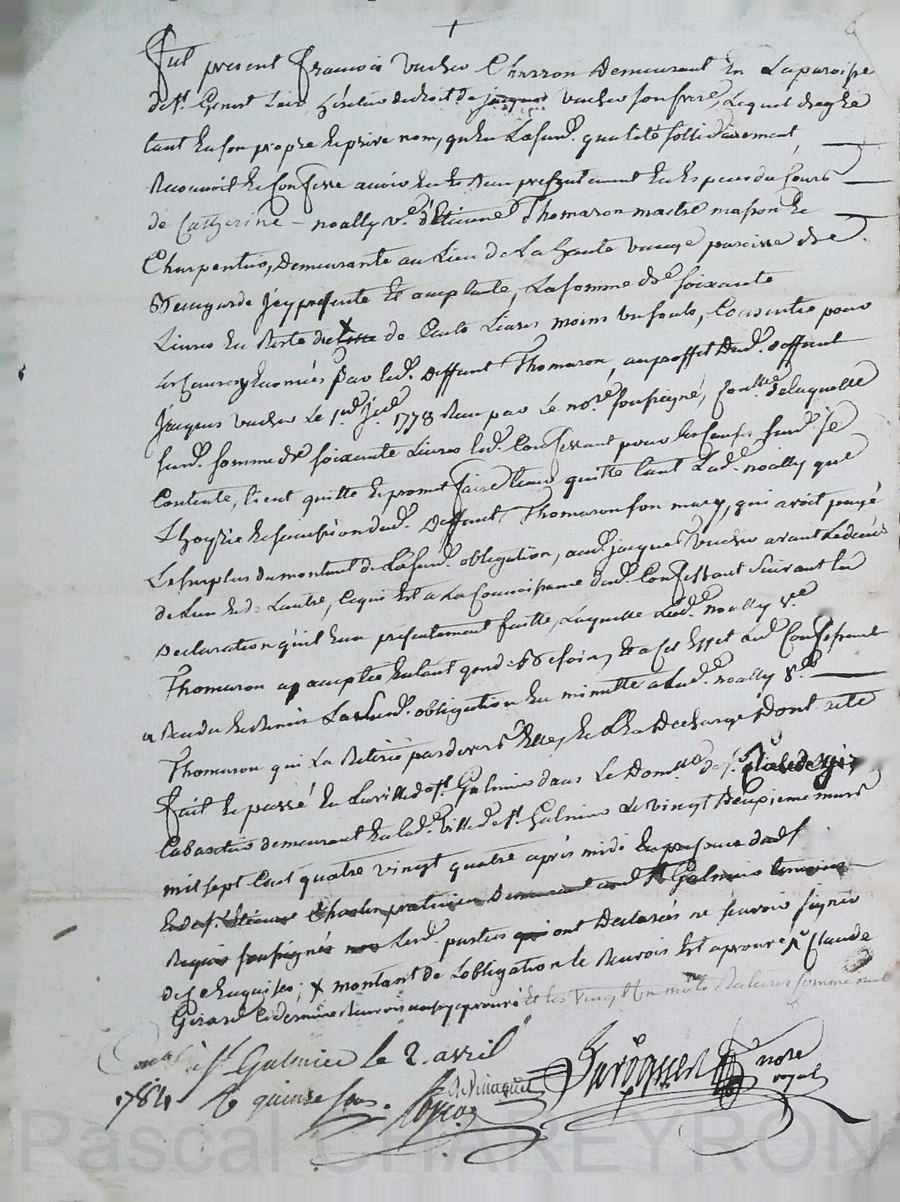 Fut present François Vacher Charron Demeurant En La paroisse
de st. Genest Lair heretier de droit de jacques vacher son frere, Lequel de gré
tant En son propre Et privé nom, qu'En La susd. qualité sollidairement
Reconnoit Et Confesse avoir Eu Et Reçu presentement En Especes du Cours
de Catherine noally ve. d'Etienne Thomaron maitre masson Et
Charpentier, Demeurante au Lieu de La haute paroisse de
Veaugarde jcy presente Et acceptante, La somme de soixante
Livres En Reste de X de Cents Livres moins un sould, Consentie pour
Les Causes Enoncées par led. deffunt Thomaron, au proffit dud. deffunt
Jacques vacher Le 1778 Reçu par Le nore. soussigné, de laquelle
susd. somme de soixante Livres led. Confessant pour Les Causes susd. se
Contente, tient quitte Et promet faire tenir quitte tant Lad. noally que
L'hoyrie Et succession dud. deffunt Thomaron son mary, qui avoit payé
Le surplus du montant de La susd. obligation, aud. jacques Vacher avant Le deces
de L'un Et de L'autre, Ce qui Est a La Connoissance dud. Confessant suivant La
Declaration qu'il En a presentement faitte, Laquelle Lad. noally ve.
Thomaron a acceptée En tant que de Besoin, Et a Cet Effet Led. Confessant
a Rendu Et Remis La susd. obligation En minutte a Lad. noally ve.
Thomaron qui La Retirée pardevers Elle, Et La Dechargé Dont acte
fait Et passé En La ville de st. Galmier dans Le Domlle. de sr. Claude
Cabaretier demeurant En lad. ville de st. Galmier Le vingt deuxieme mars
mil sept Cent quatre vingt quatre après midi En presence dud. sr.
Et de sr. Etienne praticien Demeurant aud. st. Galmier temoins
Requis soussignés non Lesd. parties qui ont Declarés ne sçavoir signer
de ce Enquises; X montant de L'obligation le Renvois Est aprouvé sr. Claude
Girard Le dernier Renvois aussy aprouvé Et les vingt Un mots Raturés comme nuls
Conté a St. Galmier le 2. avril
1784 R quinze sous
nore
royal
Pascal CHAREYRON